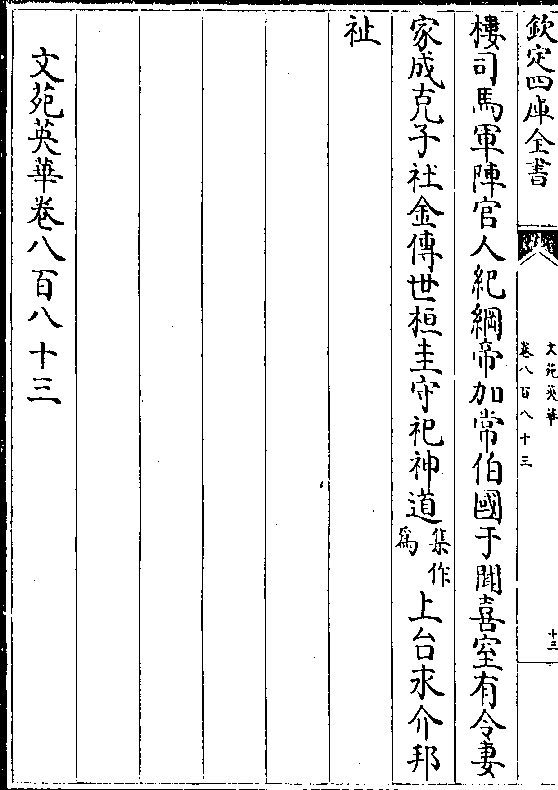 欽定四庫全書
文苑英華
卷八百八十三
十三
樓司馬軍陣官人紀綱帝加常伯國于聞喜室有令妻
家成克子社金傳世桓圭守祀神道集作爲上台永介邦
祉
文苑英華卷八百八十三